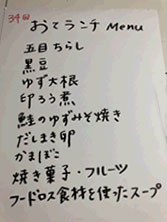 34回
おてランチ Menu
五目ちらし
黒豆
ゆず大根
印ろう煮
鮭のゆずみそ焼き
だしまき卵
かまぼこ
焼き菓子・フルーツ
フードロス食材を使ったスープ